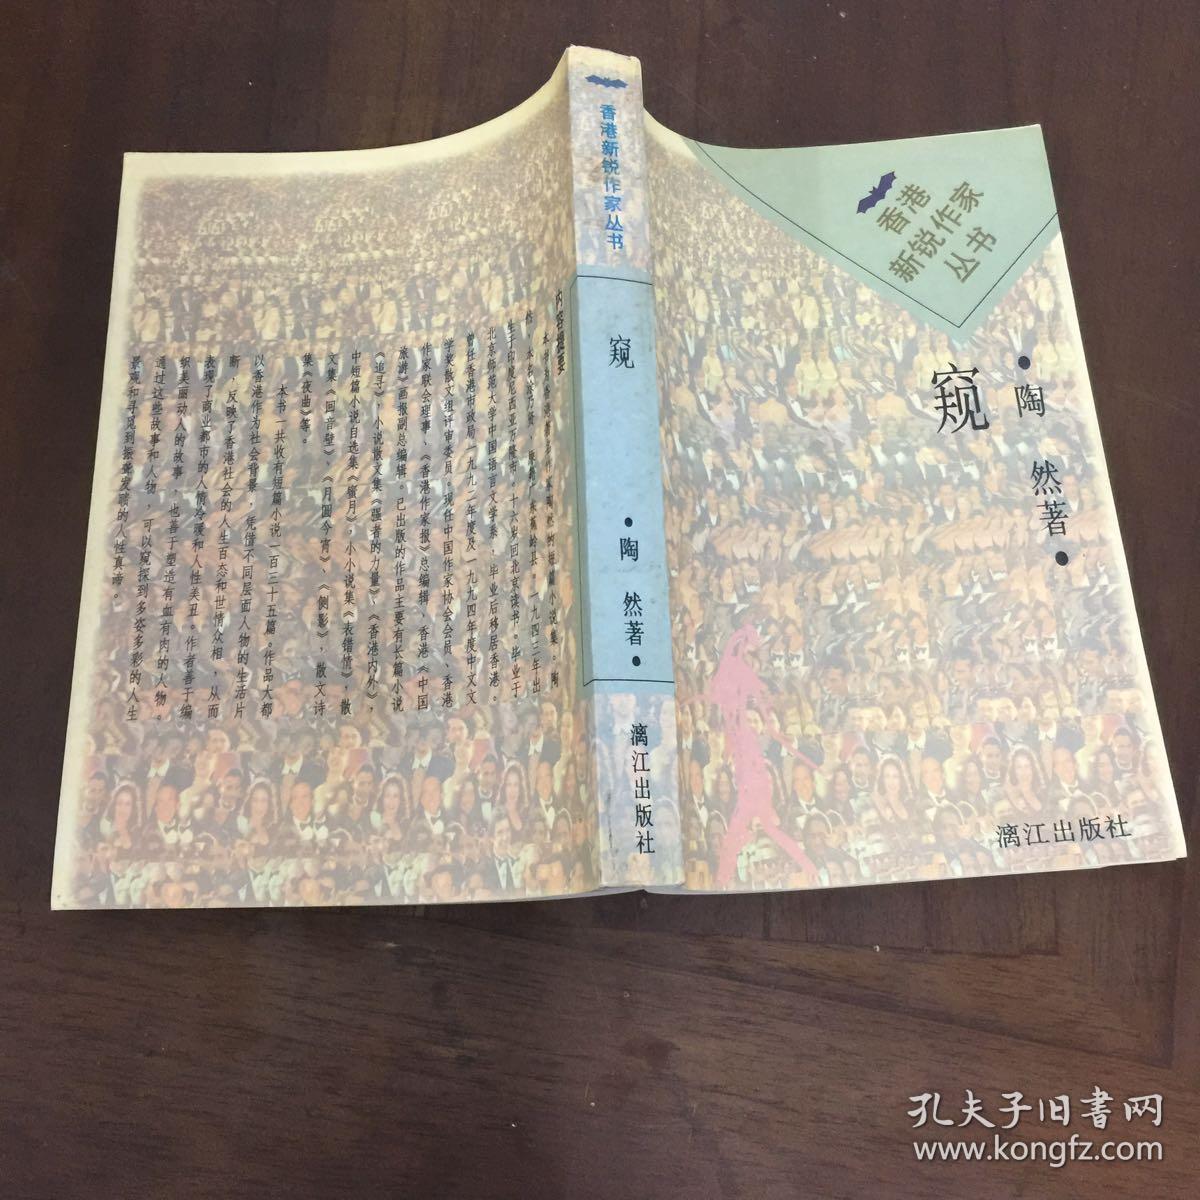 香港
新锐作家
丛书
窥
·陶然著·
漓江出版社
香港新锐作家丛书
窥
·陶然著·
漓江出版社
内容提要
生于印度尼西亚万隆市。十六岁回北京读书。毕业于
北京师范大学中国语言文学系，毕业后移居香港。
曾任香港市政局一九九二年度及一九九四年度中文文
学奖散文组评审委员。现任中国作家协会会员、香港
作家联会理事、《香港作家报》总编辑、香港《中国
旅游》画报副总编辑。已出版的作品主要有长篇小说
《追寻》，小说散文集《强者的力量》、《香港内外》，
中短篇小说自选集《蜜月》，小小说集《表错情》，散
文集《回音壁》、《月圆今宵》、《侧影》，散文诗
集《夜曲》等。
本书一共收有短篇小说一百三十五篇。作品大都
以香港作为社会背景，凭借不同层面人物的生活片
断，反映了香港社会的人生百态和世情众相，从而
表现了商业都市的人情冷暖和人性美丑。作者善于编
织美丽动人的故事，也善于塑造有血有肉的人物。
通过这些故事和人物，可以窥探到多姿多彩的人生
景观和寻觅到振聋发聩的人性真谛。
孔夫子旧书网
www.kongfz.com